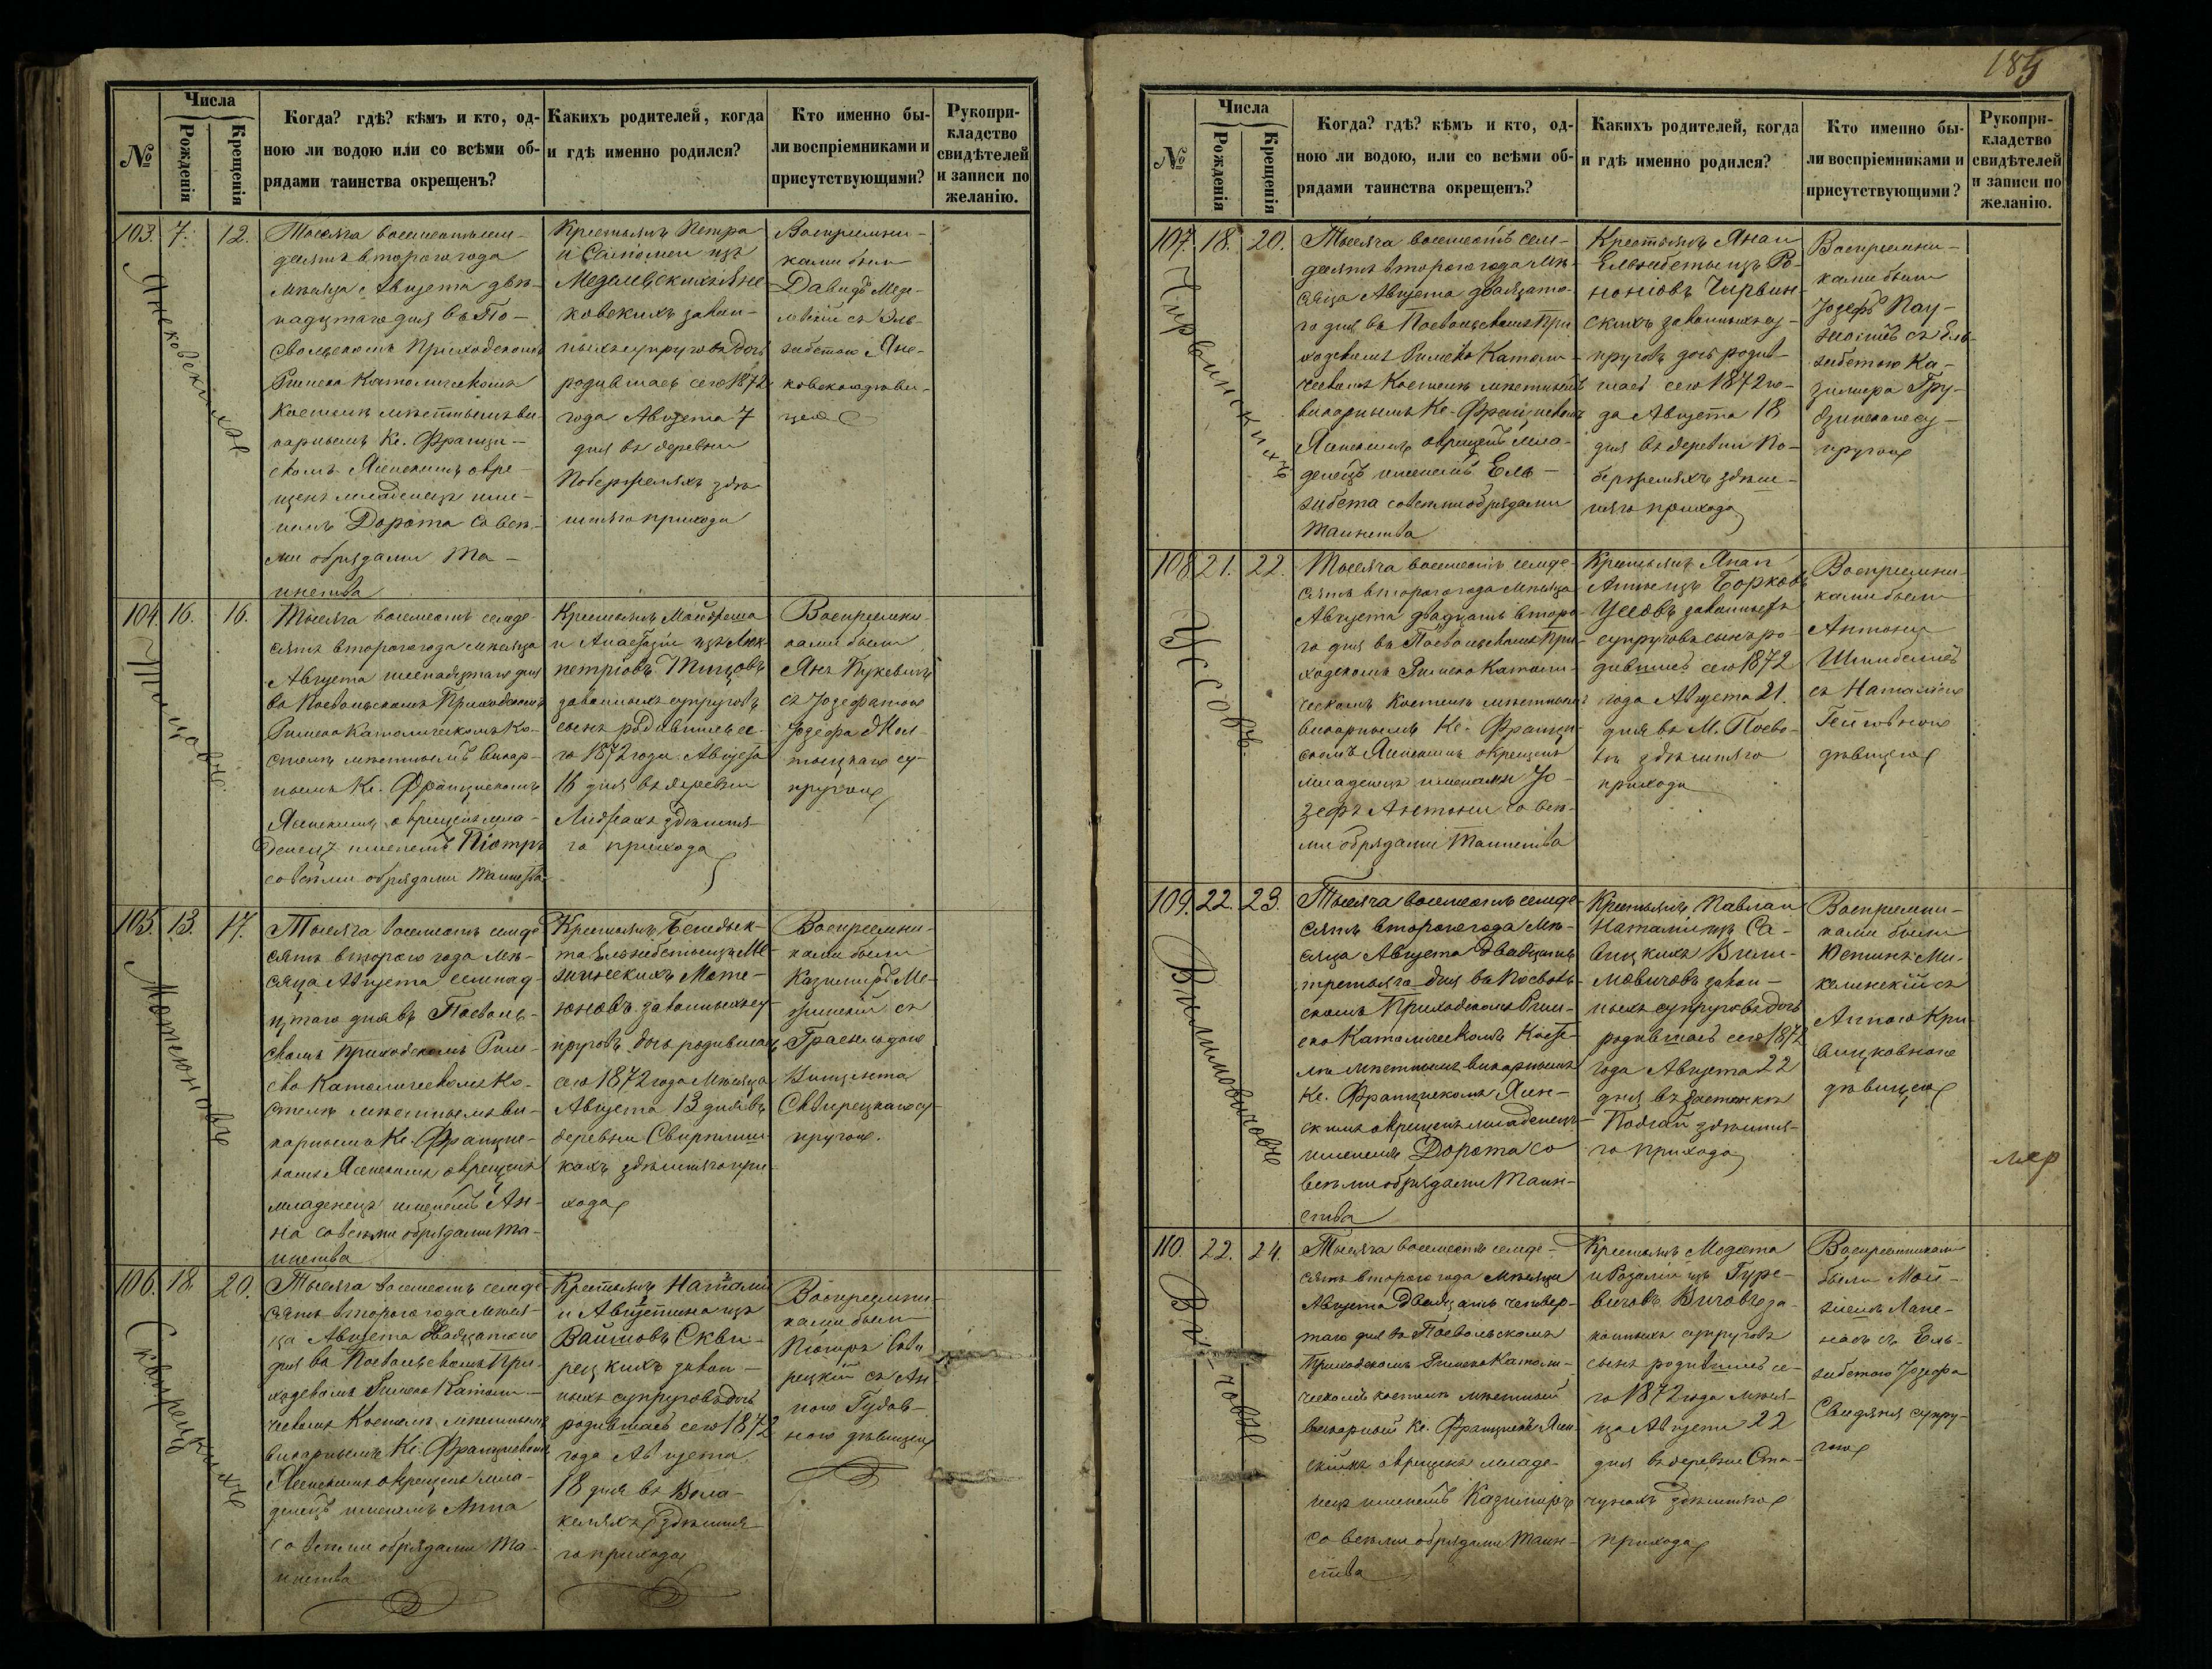 №
Числа
Рожденія
Крещенія
Когда? гдѣ? кѣмъ и кто, од-
ною ли водою или со всѣми об-
рядами таинства окрещенъ?
Какихъ родителей, когда
и гдѣ именно родился?
Кто именно бы-
ли воспріемниками и
присутствующими?
Рукопри-
кладство
свидѣтелей
и записи по
желанію.
103. 7. 12.
Тысяча восемьсотъ сем-
десятъ втораго года
мѣсяца Августа двѣ-
надцтаго дня въ По-
свольскомъ Приходскомъ
Римско Католическомъ
Костелѣ мѣстнымъ ви-
карнымъ Кс. Францис-
комъ Ясенскимъ окре-
щенъ младенецъ име-
немъ Дорота со всѣ-
ми обрядами Та-
инства
Крестьянъ Петра
и Саломеи изъ
ковскихъ закон-
ныхъ супруговъ дочь
родившаясь сего 1872
года Августа 7
дня въ деревни
здѣ-
шняго прихода
Воспріемни-
ками были
Давидъ Меде-
съ Эль-
жбетою Яне-
ковскою дѣви-
цею
104. 16. 16.
Тысяча восемьсотъ семде-
сятъ втораго года мѣсяца
Августа шеснадцтаго дня
въ Посвольскомъ Приходскомъ
Римско Католическомъ Ко-
стелѣ мѣстнымъ викар-
нымъ Кс. Францискомъ
Ясенскимъ окрещенъ мла-
денецъ именемъ Піотръ
со всѣми обрядами Таинства
Крестьянъ
и Анастазіи изъ
законныхъ супруговъ
сынъ родившись се-
го 1872 года Августа
16 дня въ деревни
здѣшня-
го прихода
Воспріемни-
ками были
Янъ
съ Юзефатою
Юзефа
су-
пругою
105. 13. 17.
Мотеюновъ
Тысяча восемьсотъ семде-
сятъ втораго года мѣ-
сяца Августа семнад-
цтаго дня въ Посволь-
скомъ Приходскомъ Рим-
ско Католическомъ Ко-
стелѣ мѣстнымъ ви-
карнымъ Кс. Францис-
комъ Ясенскимъ окрещенъ
младенецъ именемъ Ан-
на со всѣми обрядами Та-
инства
Крестьянъ Бенедык-
та Эльжбеты изъ Ме-
жинскихъ Моте-
юновъ законныхъ су-
пруговъ дочь родившаясь
сего 1872 года Мѣсяца
Августа 13 дня въ
деревни
кахъ здѣшняго при-
хода
Воспріемни-
ками были
Казимиръ Ме-
жинскій съ
Винцента
Сквирецкаго су-
пругою.
106. 18. 20.
Сквирецкихъ
Тысяча восемьсотъ семде-
сятъ втораго года мѣся-
ца Августа двадцатого
дня въ Посвольскомъ При-
ходскомъ Римско Католи-
ческомъ Костелѣ мѣстнымъ
викарнымъ Кс. Францискомъ
Ясенскимъ окрещенъ мла-
денецъ именемъ Анна
со всѣми обрядами Та-
инства
Крестьянъ
и
Сквирецкихъ закон-
ныхъ супруговъ дочь
родившаясь сего 1872
года Августа
18 дня въ
здѣшня-
го прихода
Воспріемни-
ками были
Піотръ Скви-
рецкій съ Ан-
ною Гудов-
ною дѣвицею
185
№
Числа
Рожденія
Крещенія
Когда? гдѣ? кѣмъ и кто, од-
ною ли водою, или со всѣми об-
рядами таинства окрещенъ?
Какихъ родителей, когда
и гдѣ именно родился?
Кто именно бы-
ли воспріемниками и
присутствующими?
Рукопри-
кладство
свидѣтелей
и записи по
желанію.
107. 18. 20.
Чирвинскихъ
Тысяча восемьсотъ сем-
десятъ втораго года мѣ-
сяца Августа двадцато-
го дня въ Посвольскомъ При-
ходскомъ Римско Католи-
ческомъ Костелѣ мѣстнымъ
викарнымъ Кс. Францискомъ
Ясенскимъ окрещенъ мла-
денецъ именемъ Ель-
жбета со всѣми обрядами
Таинства
Крестьянъ Яна и
Ельжбеты изъ
Чирвин-
скихъ законныхъ су-
пруговъ дочь родив-
шаясь сего 1872 го-
да Августа 18
дня въ деревни
здѣш-
няго прихода
Воспріемни-
ками были
Юзефъ
съ Ель-
жбетою Ка-
зимира
су-
пругою
108. 21. 22.
Уссовъ
Тысяча восемьсотъ семде-
сятъ втораго года мѣсяца
Августа двадцатъ второ-
го дня въ Посвольскомъ При-
ходскомъ Римско Католи-
ческомъ Костелѣ мѣстнымъ
викарнымъ Кс. Францис-
комъ Ясенскимъ окрещенъ
младенецъ именами Ю-
зефъ Антони со всѣ-
ми обрядами Таинства
Крестьянъ Яна и
Анны изъ Борковъ
Уссовъ законныхъ
супруговъ сынъ ро-
дившись сего 1872
года Августа 21.
дня въ М. Посво-
лѣ здѣшняго
прихода
Воспріемни-
ками были
Антони
съ Наталіею
дѣвицею
109. 22. 23.
Вилимовичовъ
Тысяча восемьсотъ семде-
сятъ втораго года Мѣ-
сяца Августа двадцатъ
третьяго дня въ Посволь-
скомъ Приходскомъ Рим-
ско Католическомъ Косте-
лѣ мѣстнымъ викарнымъ
Кс. Францискомъ Ясен-
скимъ окрещенъ младенецъ
именемъ Дорота со
всѣми обрядами Таин-
ства
Крестьянъ Павла и
Наталіи изъ Са-
вицкихъ Вили-
мовичовъ закон-
ныхъ супруговъ дочь
родившаясь сего 1872
года Августа 22
дня въ застенкѣ
здѣшня-
го прихода
Воспріемни-
ками были
Юстинъ Ми-
калискій съ
Анною Кри-
вицковною
дѣвицею
110. 22. 24.
Тысяча восемьсотъ семде-
сятъ втораго года Мѣсяца
Августа двадцатъ четвер-
таго дня въ Посвольскомъ
Приходскомъ Римско Католи-
ческомъ костелѣ мѣстный
викарный Кс. Францискъ Ясен-
скимъ окрещенъ младе-
нецъ именемъ Казимиръ
со всѣми обрядами Таин-
ства
Крестьянъ Модеста
и Розаліи изъ Гуре-
вичовъ за-
конныхъ супруговъ
сынъ родившись се-
го 1872 года мѣся-
ца Августа 22
дня въ деревни Ста-
чунахъ здѣшняго
прихода
Воспріемниками
были Мой-
съ Ель-
жбетою Юзефа
супру-
гою